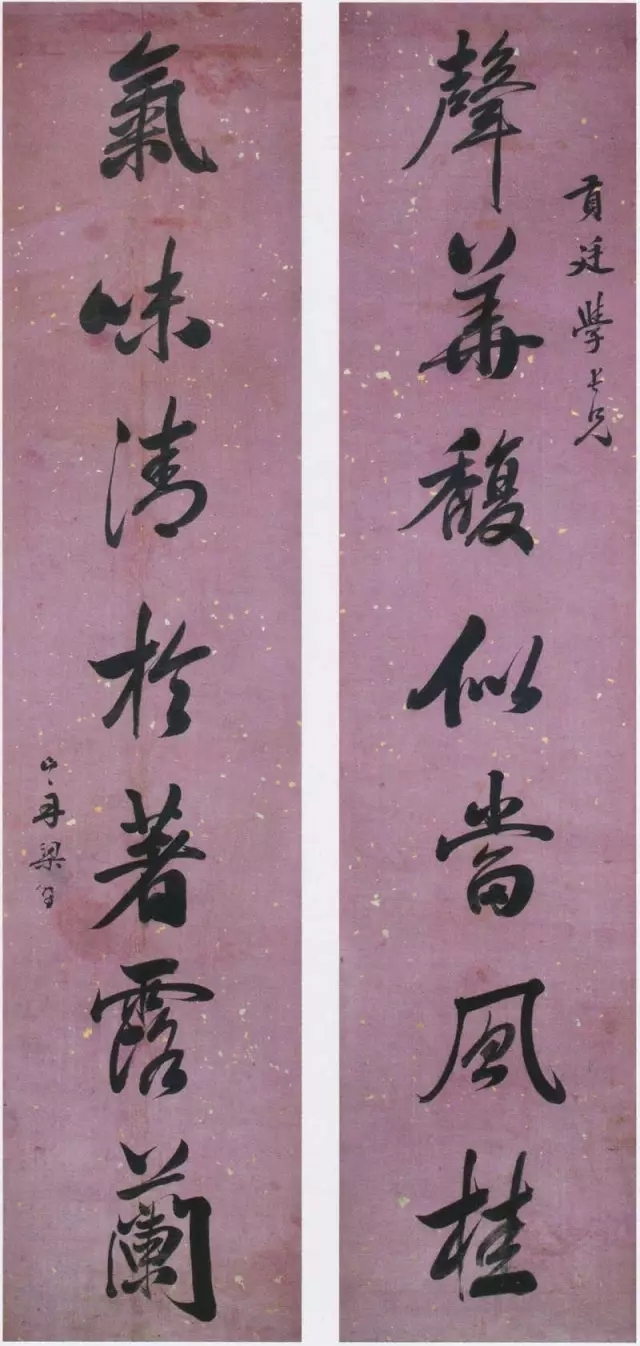 貢廷學長兄
聲華馥似當風桂
氣味清於著露蘭
山舟梁